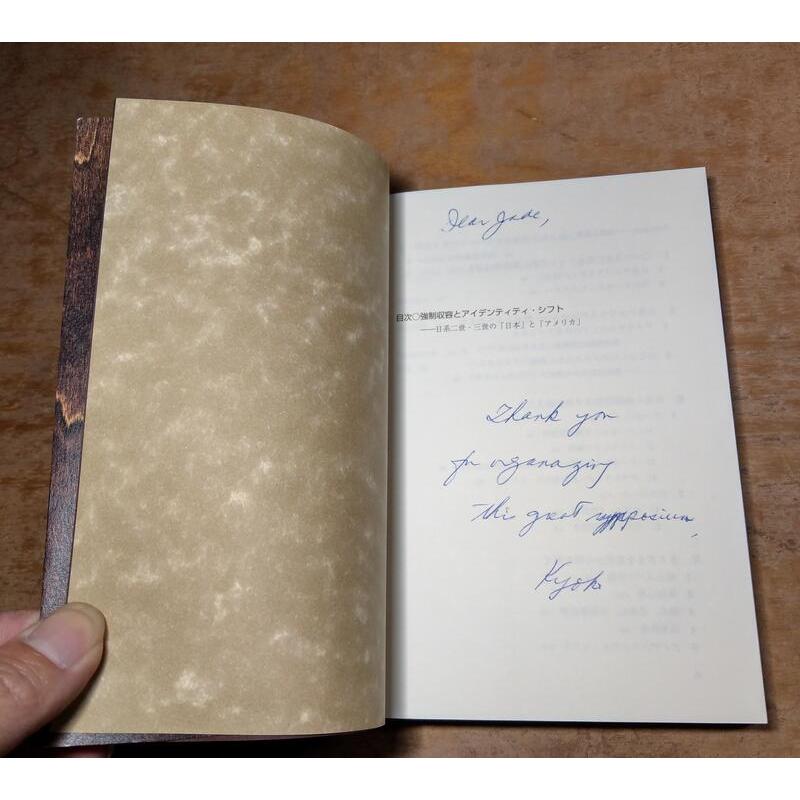 Dear Jade,
目次○強制収容とアイデンティティ・シフト
——日系二世・三世の「日本」と「アメリカ」
Thank you
for organazing
this great sypposium,
Kyoko